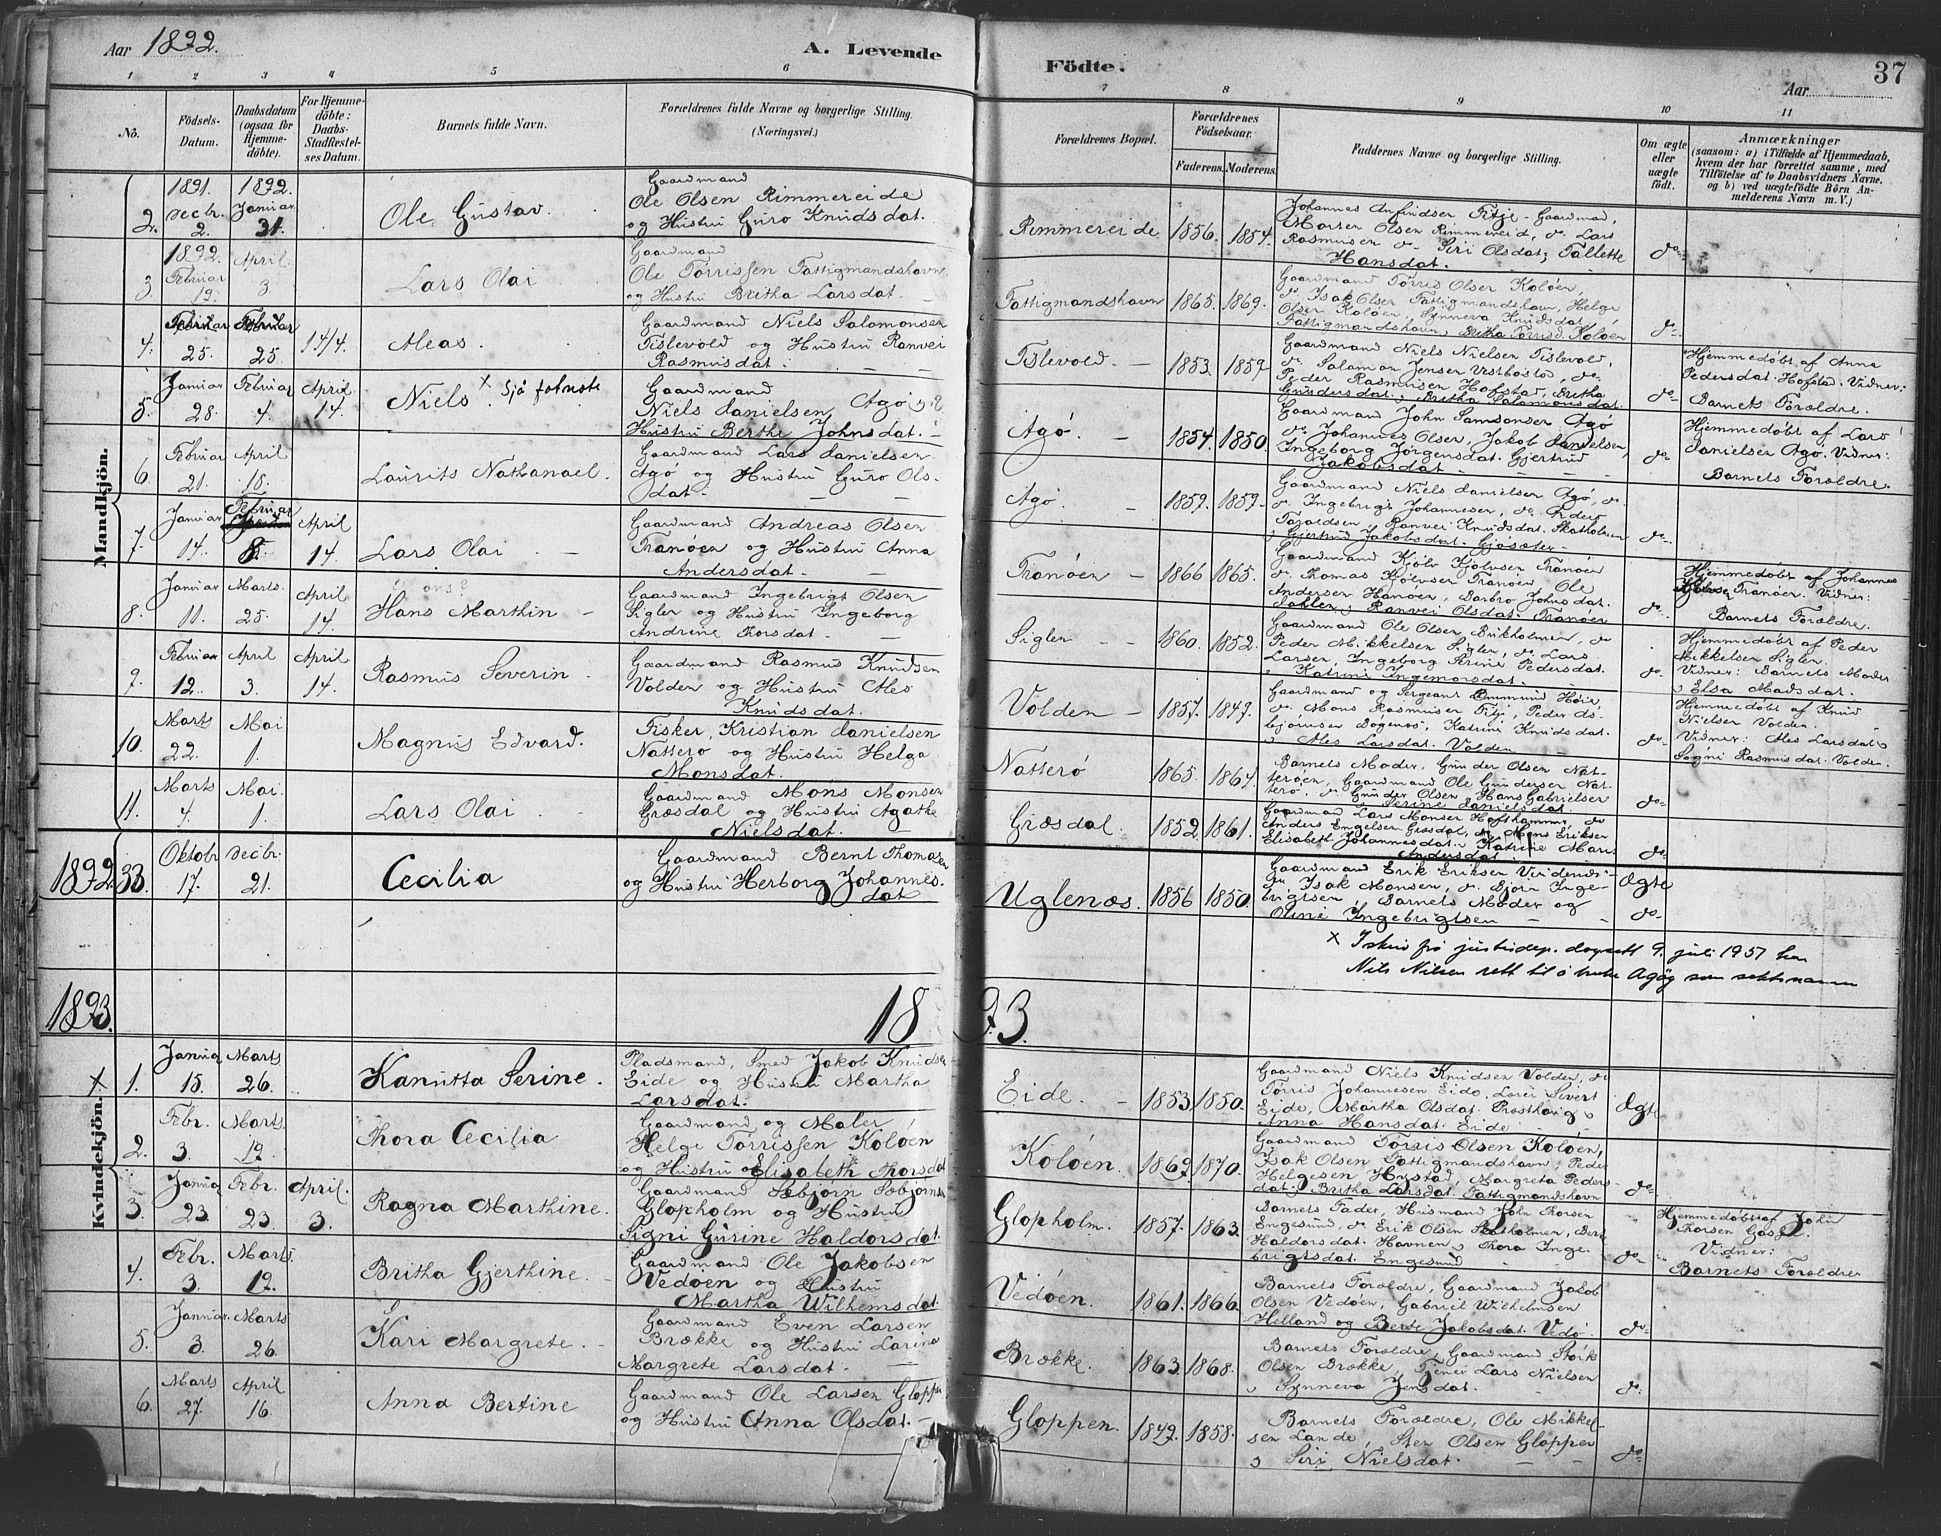 Aar 1892.
A. Levende
Födte.
37
Aar
1 2 3 4 5 6 7 8 9 10 11
No.
Födsels-Datum.
Daabsdatum (ogsaa for Hjemme-döbte).
For Hjemme-döbte: Daabs-Stadfæstel-ses Datum.
Barnets fulde Navn.
Forældrenes fulde Navne og borgerlige Stilling.
(Næringsvei.)
Forældrenes Bopæl.
Forældrenes Födselsaar.
Faderens. Moderens.
Faddernes Navne og borgerlige Stilling.
Om ægte eller uægte födt.
Anmærkninger
(saasom: a) i Tilfælde af Hjemmedaab,
hvem der har forrettet samme, med
Tilföielse af to Daabsvidners Navne,
og b) ved uægtefödte Börn An-
melderens Navn m. V.)
Mandkjön.
2. 1891. Decbr. 2. 1892. Januar 31. Ole Gustav.
Gaardmand
Ole Olsen Rimmereide
og Hustru Guro Knudsdat.
Rimmereide 1856. 1854.
Johannes Anfindsen Fitje - Gaardmd,
Morten Olsen Rimmereid, do. Lars
Rasmusen do. Siri Olsdat, Tallette
Hansdat.
do.
3. 1892. Februar 19. April 3. Lars Olai
Gaardmand
Ole Törrissen Fattigmandshavn
og Hustru Britha Larsdat.
Fattigmandshavn 1865. 1869.
Gaardmand Törris Olsen Kolöen,
do. Isak Olsen Fattigmandshavn, Helge
Olsen Kolöen, Synneva Knudsdat.
Fattigmandshavn, Britha Törrisd. Kolöen
do.
4. Februar 25. Februar 25. 14/4. Aleas.
Gaardmand Niels Salomonsen
Tislevold og Hustru Ranvei
Rasmusdat.
Tislevold. 1853. 1859.
Gaardmand Niels Nielsen Tislevold,
do. Salamon Jensen Vestbostad, do.
Peder Rasmusen Hofstad, Britha
Gundersdat, Britha Salamonsdat.
do.
Hjemmedöbt af Anna
Pedersdat. Hofstad. Vidner:
Barnets Forældre.
5. Januar 28. Februar 4. April 14. Niels. x Sjå fotnote
Gaardmand
Niels Danielsen Agö og
Hustru Berthe Johnsdat.
Agö. 1854. 1850.
Gaardmand John Samsonsen Agö
do. Johannes Olsen, Jakob Danielsen,
Ingeborg Jörgensdat. Gjertrud
Jakobsdat
do.
Hjemmedöbt af Lars
Danielsen Agö. Vidner:
Barnets Forældre.
6. Februar 21. April 18. Laurits Nathanael.
Gaardmand Lars Danielsen
Agö og Hustru Guro Ols-
dat.
Agö. 1859. 1859.
Gaardmand Niels Danielsen Agö, do.
do. Ingebrigt Johannesen, do. Peder
Taraldsen, Ranvei Knudsdat. Skotholmen
Gjertrud Jakobsdat. Gjösæter
do.
7. Januar 14. Februar 8. April 14. Lars Olai
Gaardmand Andreas Olsen
Tranöen og Hustru Anna
Andersdat.
Tranöen 1866 1865.
Gaardmand Kjölv Kjölvsen Tranöen
do. Thomas Kjölvsen Tranöen Ole
Andersen Hanöen, Barbro Johnsdat.
Ranvei Olsdat. Tranöen
do.
Hjemmedöbt af Johannes
Tranöen. Vidner:
Barnets Forældre.
8. Januar 11. Marts. 25. April 14. Hans Marthin
Gaardmand Ingebrigt Olsen
Sigler og Hustru Ingeborg
Andrine Thorsdat.
Sigler 1860. 1852.
Gaardmand Ole Olsen Birkholmen, do
Peder Mikkelsen Sigler, do. Lars
Larsen, Ingeborg Serine Pedersdat.
Katrine Ingemorsdat.
do.
Hjemmedöbt af Peder
Mikkelsen Sigler.
Vidner: Barnets Moder
Elsa Madsdat.
9. Februar 12. April 3. April 14. Rasmus Severin
Gaardmand Rasmus Knudsen
Volden og Hustru Ales
Knudsdat.
Volden 1857. 1849.
Gaardmand og Sergeant Ommund Höie,
do. Mons Rasmusen Fitje, Peder
Katrine Knudsdat.
Ales Larsdat. Volden
do.
Hjemmedöbt af Knud
Nielsen Volden.
Vidner: Ales Larsdat
Sögni Rasmusdat. Volden.
10. Marts 22. Mai 1. Magnus Edvard.
Fisker, Kristian Danielsen
Natterö og Hustru Helga
Monsdat.
Natterö 1865. 1864.
Barnets Moder, Gunder Olsen Nat-
teröen, Gaardmand Ole Gundersen Nat-
terö, do. Gunder Olsen, Hans Gabrielsen
Serine Danielsdat.
do.
11. Marts 4. Mai. 1. Lars Olai
Gaardmand Mons Monsen
Græsdal og Hustru Agathe
Nielsdat.
Græsdal. 1852. 1861.
Gaardmand Lars Monsen Hofshamme, do
Anders Engelsen Græsdal, do. Mons Eriksen
Elisabeth Johannesdat, Katrine Marie
Andersdat
do.
1892. 33. Oktobr 17. Decbr. 21. Cecilia
Gaardmand Bernt Thomasen
og Hustru Herborg Johannes-
dat
Uglenæs. 1856 1850.
Gaardmand Erik Eriksen
do. Isak Monsen, do. Björn Inge-
brigtsen, Barnets Moder og
Oline Ingebrigtsen
Ægte
do.
x I skriv frå justisdep. dagsett 9. juli 1951 har
Nils Nilsen rett til å bruke Agöy som slektsnamn
1893. 1893.
Kvindekjön.
x 1. Januar 15. Marts 26. Kanutta Serine.
Pladsmand, Smed Jakob Knudsen
Eide og Hustru Martha
Larsdat.
Eide. 1853 1850.
Gaardmand Niels Knudsen Volden, do
Törris Johannesen Eide, Lærer Sivert
Eide, Martha Olsdat. Prosthavig
Anna Hansdat. Eide
Ægte
2. Febr. 3. Marts. 19. Thora Cecilia
Gaardmand og Maler
Helge Törrissen Kolöen
og Hustru Elisabeth Thorsdat
Kolöen. 1869. 1870.
Gaardmand Törris Olsen Kolöen,
Isak Olsen Fattigmandshavn, Peder
Helgesen Hustad, Margreta Peders-
dat, Britha Larsdat. Fattigmandshavn
do.
3. Januar 23. Febr. 23. April. 3. Ragna Marthine.
Gaardmand Sæbjörn Sæbjörns
Glopholm og Hustru
Signi Gurine Haldorsdat.
Glopholm. 1857. 1863.
Barnets Fader, Husmand John Thorsen
Engesund, do. Erik Olsen Skotholmen, Berte
Haldorsdat. Havnen, Thora Inge-
brigtsdat. Engesund
do.
Hjemmedöbt af John
Thorsen
Vidner:
Barnets Forældre
4. Febr. 3. Marts. 12. Britha Gjerthine.
Gaardmand Ole Jakobsen
Vedöen og Hustru
Martha Wilhemsdat.
Vedöen. 1861. 1866.
Barnets Forældre, Gaardmand Jakob
Olsen Vedöen, Gabriel Wilhelmsen
Helland og Berte Jakobsdat. Vedö.
do.
5. Januar. 3. Marts 26. Kari Margrete.
Gaardmand Even Larsen
Brække og Hustru Larina
Margrete Larsdat.
Brække. 1863. 1868.
Barnets Forældre, Gaardmand Störk
Olsen Brække, Tjener Lars Nielsen
Synneva Jensdat.
do.
6. Marts 27. April 16. Anna Bertine
Gaardmand Ole Larsen Gloppe
og Hustru Anna Olsdat.
Gloppen. 1849. 1858.
Barnets Forældre, Ole Mikkel-
sen Lande, Sten Olsen Gloppen
Siri Nielsdat.
do.